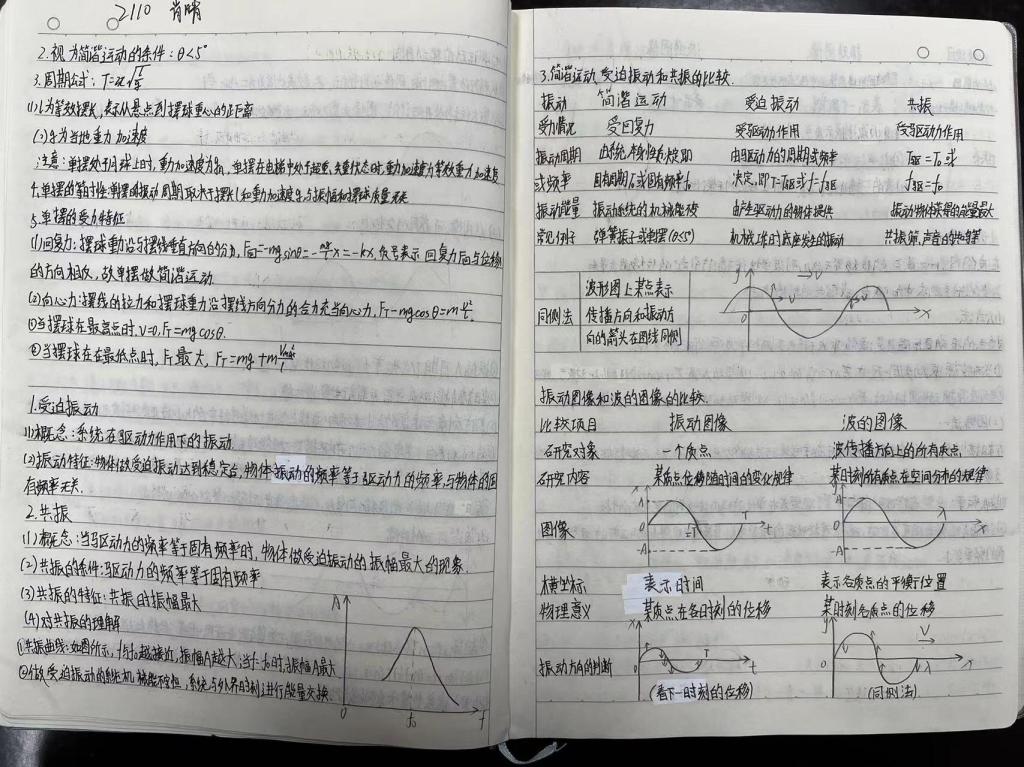 2110 肖晴
2.视为简谐运动的条件:θ<5°
3.周期公式:T=2π√(l/g)
(1)l为等效摆长,表示从悬点到摆球重心的距离
(2)g为当地重力加速度
注意:单摆处于月球上时,重力加速度为g月,单摆在电梯中处于超重、失重状态时,重力加速度为等效重力加速度
4.单摆的等时性:单摆的振动周期取决于摆长l和重力加速度g,与振幅和摆球质量无关
5.单摆的受力特征
(1)回复力:摆球重力沿与摆线垂直方向的分力,F回=-mgsinθ=-mg/l x=-kx,负号表示回复力方向与位移
的方向相反,故单摆做简谐运动.
(2)向心力:摆线的拉力和摆球重力沿摆线方向分力的合力充当向心力,FT-mgcosθ=mv²/l.
①当摆球在最高点时,v=0,FT=mgcosθ.
②当摆球在在最低点时,FT最大,FT=mg+mvmax²/l
1.受迫振动
(1)概念:系统在驱动力作用下的振动
(2)振动特征:物体做受迫振动达到稳定后,物体振动的频率等于驱动力的频率,与物体的固
有频率无关.
2.共振
(1)概念:当驱动力的频率等于固有频率时,物体做受迫振动的振幅最大的现象.
(2)共振的条件:驱动力的频率等于固有频率
(3)共振的特征:共振时振幅最大
(4)对共振的理解
①共振曲线:如图所示,f与f0越接近,振幅A越大,当f=f0时,振幅A最大
②做受迫振动的系统机械能不守恒,系统与外界时刻进行能量交换.
A
0 f0 f
3.简谐运动、受迫振动和共振的比较.
振动 简谐运动 受迫振动 共振
受力情况 受回复力 受驱动力作用 受驱动力作用
振动周期 由系统本身性质决定,即 由驱动力的周期或频率 T驱=T0或
或频率 固有周期T0或固有频率f0 决定,即T=T驱或f=f驱 f驱=f0
振动能量 振动系统的机械能不变 由产生驱动力的物体提供 振动物体获得的能量最大
常见例子 弹簧振子或单摆(θ<5°) 机械工作时底座发生的振动 共振筛、声音的共鸣等
波形图上某点表示
同侧法 传播方向和振动方
向的箭头在图线同侧
y v v
0 x
振动图像和波的图像的比较.
比较项目 振动图像 波的图像
研究对象 一个质点 波传播方向上的所有质点
研究内容 某质点位移随时间的变化规律 某时刻所有质点在空间分布的规律
图像
x A 0 -A T t
y A 0 -A λ x
横坐标 表示时间 表示各质点的平衡位置
物理意义 某质点在各时刻的位移 某时刻各质点的位移
振动方向的判断
x 0 T t
y v 0 λ x
(看下一时刻的位移) (同侧法)